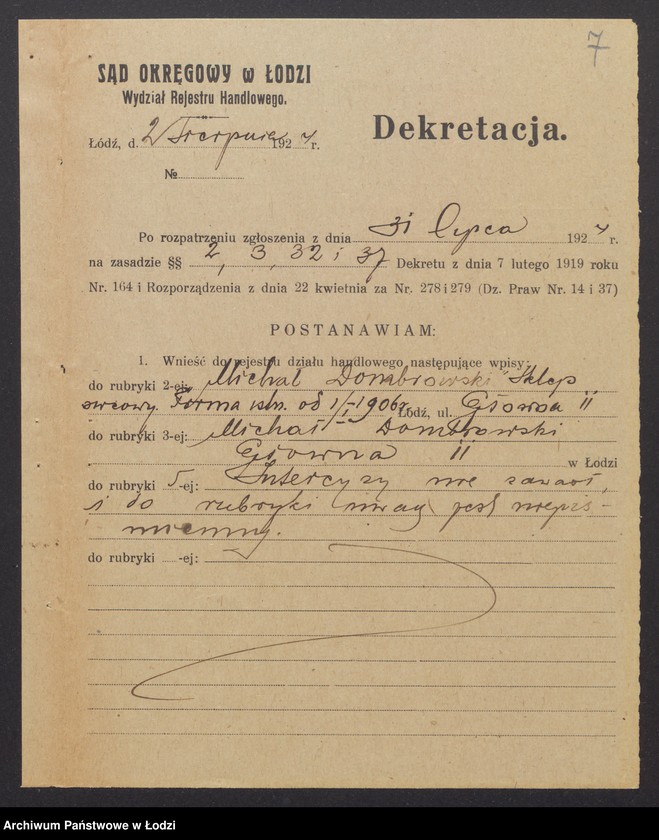 7
SĄD OKRĘGOWY w ŁODZI
Wydział Rejestru Handlowego.
Dekretacja.
Łódź, d. 2 Sierpnia 1924 r.
№
Po rozpatrzeniu zgłoszenia z dnia 31 lipca 1924 r.
na zasadzie §§ 2, 3, 32 i 37 Dekretu z dnia 7 lutego 1919 roku
Nr. 164 i Rozporządzenia z dnia 22 kwietnia za Nr. 278 i 279 (Dz. Praw Nr. 14 i 37)
POSTANAWIAM:
1. Wnieść do rejestru działu handlowego następujące wpisy:
do rubryki 2-ej: Michał Dombrowski Sklep
owocowy. Firma istn. od 1/I-1906r. Łódź, ul. Główna 11
do rubryki 3-ej: Michał Dombrowski
Główna 11 w Łodzi
do rubryki 5-ej: Intercyzy nie zawarł,
i do rubryki uwag jest niepiś-
mienny.
do rubryki -ej:
Archiwum Państwowe w Łodzi